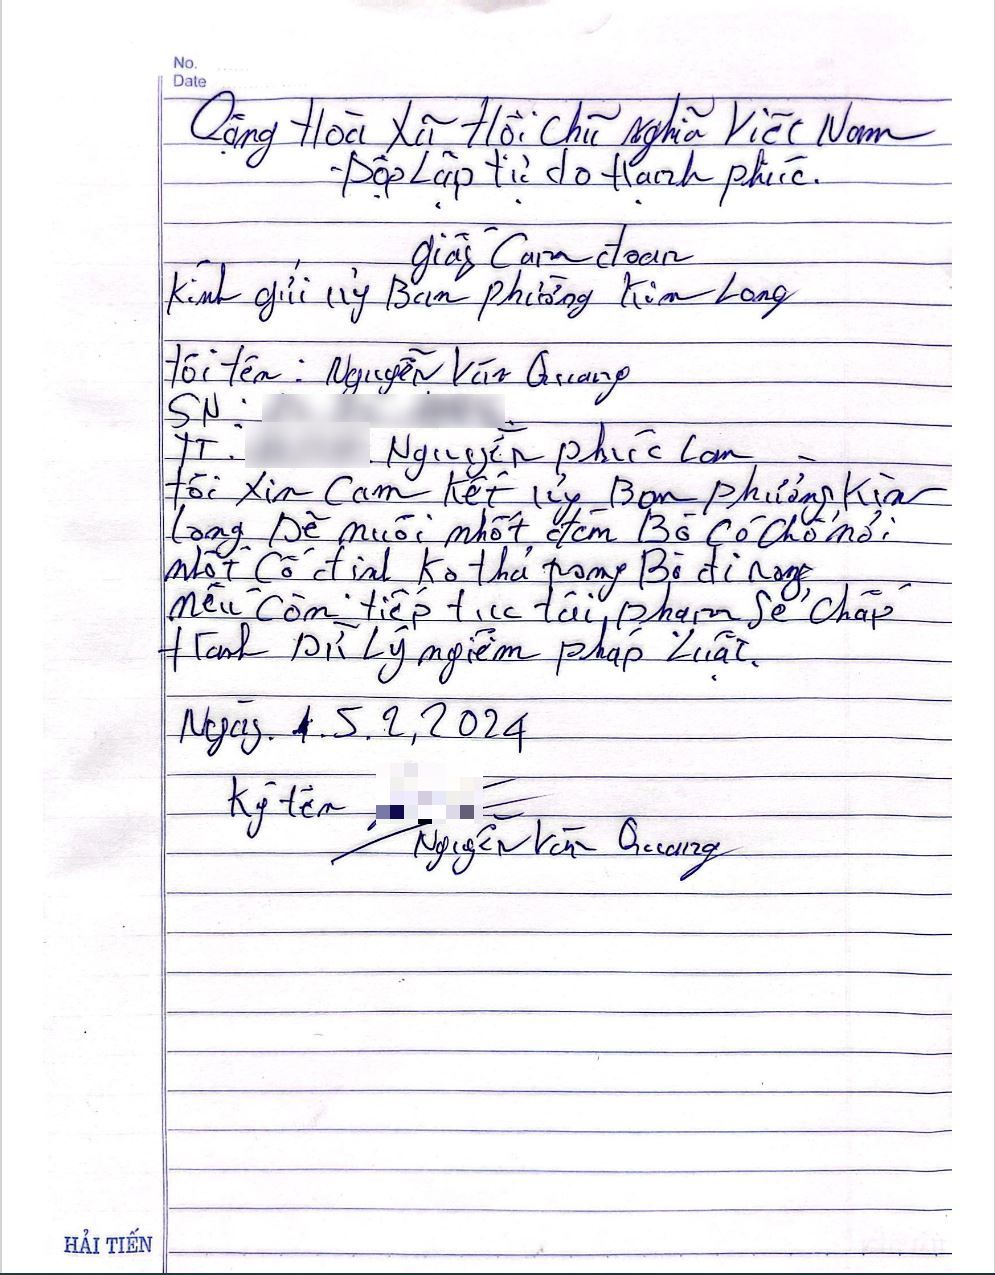 No.
Date
Cộng Hoà Xã Hội Chũ Nghĩa Việc Nam
-Độp Lập tự do Hạnh phúc.
giấy Cam đoan
Kính gửi Uỷ Ban phường Kim Long
tôi tên : Nguyễn Văn Quang
SN :
TT. Nguyễn phúc Lan
tôi Xin Cam Kết Uỷ Ban phường Kim
Long Dề nuôi nhốt đêm Bò Có Chổ nơi
nhốt Cố định Ko thả rong Bò đi rong
nếu Còn tiếp tục tái phạm Sẻ Chấp
Hành Xử Lý ngiêm pháp Luật.
Ngày. 15.2,2024
Ký tên
Nguyễn Văn Quang
HẢI TIẾN